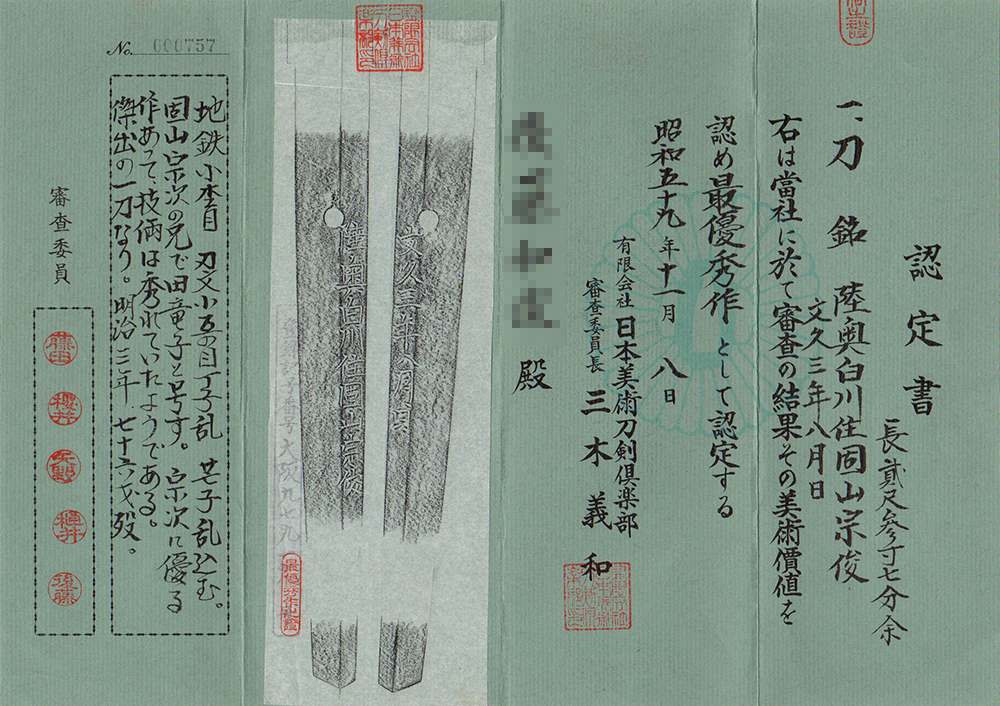 認定書
長貳尺參寸七分余
一、刀 銘 陸奥白川住固山宗俊
文久三年八月日
右は當社に於て審査の結果その美術價値を
認め最優秀作として認定する
昭和五十九年十一月八日
有限会社 日本美術刀剣倶楽部
審査委員長 三木義和
殿
陸奥白川住固山宗俊
大阪九七九
最優秀作之證
No. 000757
地鉄小杢目 刃文小互の目丁子乱 芒子乱込む。
固山宗次の兄で田竜子と号す。宗次に優る
作あって、技倆は秀れていたようである。
傑出の一刀なり。明治三年、七十六才歿。
審査委員
藤田
櫻井
後藤